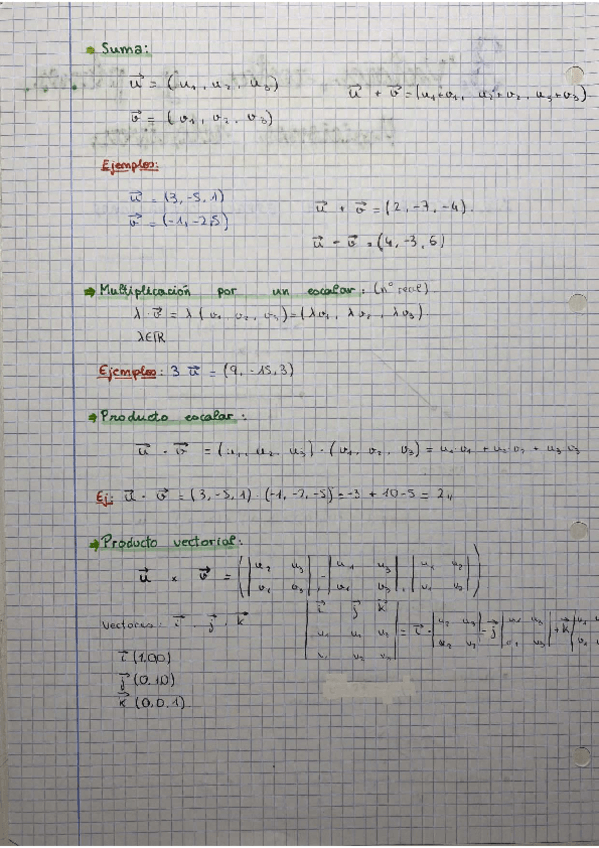 → Suma:
u⃗ = (u₁, u₂, u₃)
u⃗ + v⃗ = (u₁+v₁, u₂+v₂, u₃+v₃)
v⃗ = (v₁, v₂, v₃)
Ejemplos:
u⃗ = (3, -5, 1)
v⃗ = (-1, -2,5)
u⃗ + v⃗ = (2, -7, -4).
u⃗ - v⃗ = (4, -3, 6)
→ Multiplicación por un escalar: (nº real)
λ · v⃗ = λ (v₁, v₂, v₃) = (λv₁, λv₂, λv₃)
λ∈ℝ
Ejemplos: 3 u⃗ = (9, -15, 3)
→ Producto escalar:
u⃗ · v⃗ = (u₁, u₂, u₃) · (v₁, v₂, v₃) = u₁·v₁ + u₂·v₂ + u₃·v₃
Ej: u⃗ · v⃗ = (3, -5, 1) · (-1, -2, -5) = -3 + 10 - 5 = 2,,
→ Producto vectorial:
u⃗ × v⃗ = ( | u₂ u₃ | , - | u₁ u₃ | , | u₁ u₂ | )
| v₂ v₃ | | v₁ v₃ | | v₁ v₂ |
Vectores: i⃗, j⃗, k⃗
| i⃗ j⃗ k⃗ |
| u₁ u₂ u₃ | = i⃗ · | u₂ u₃ | - j⃗ | u₁ u₃ | + k⃗ | u₁ u₂
| v₁ v₂ v₃ |
i⃗ (1,0,0)
j⃗ (0,1,0)
k⃗ (0,0,1)